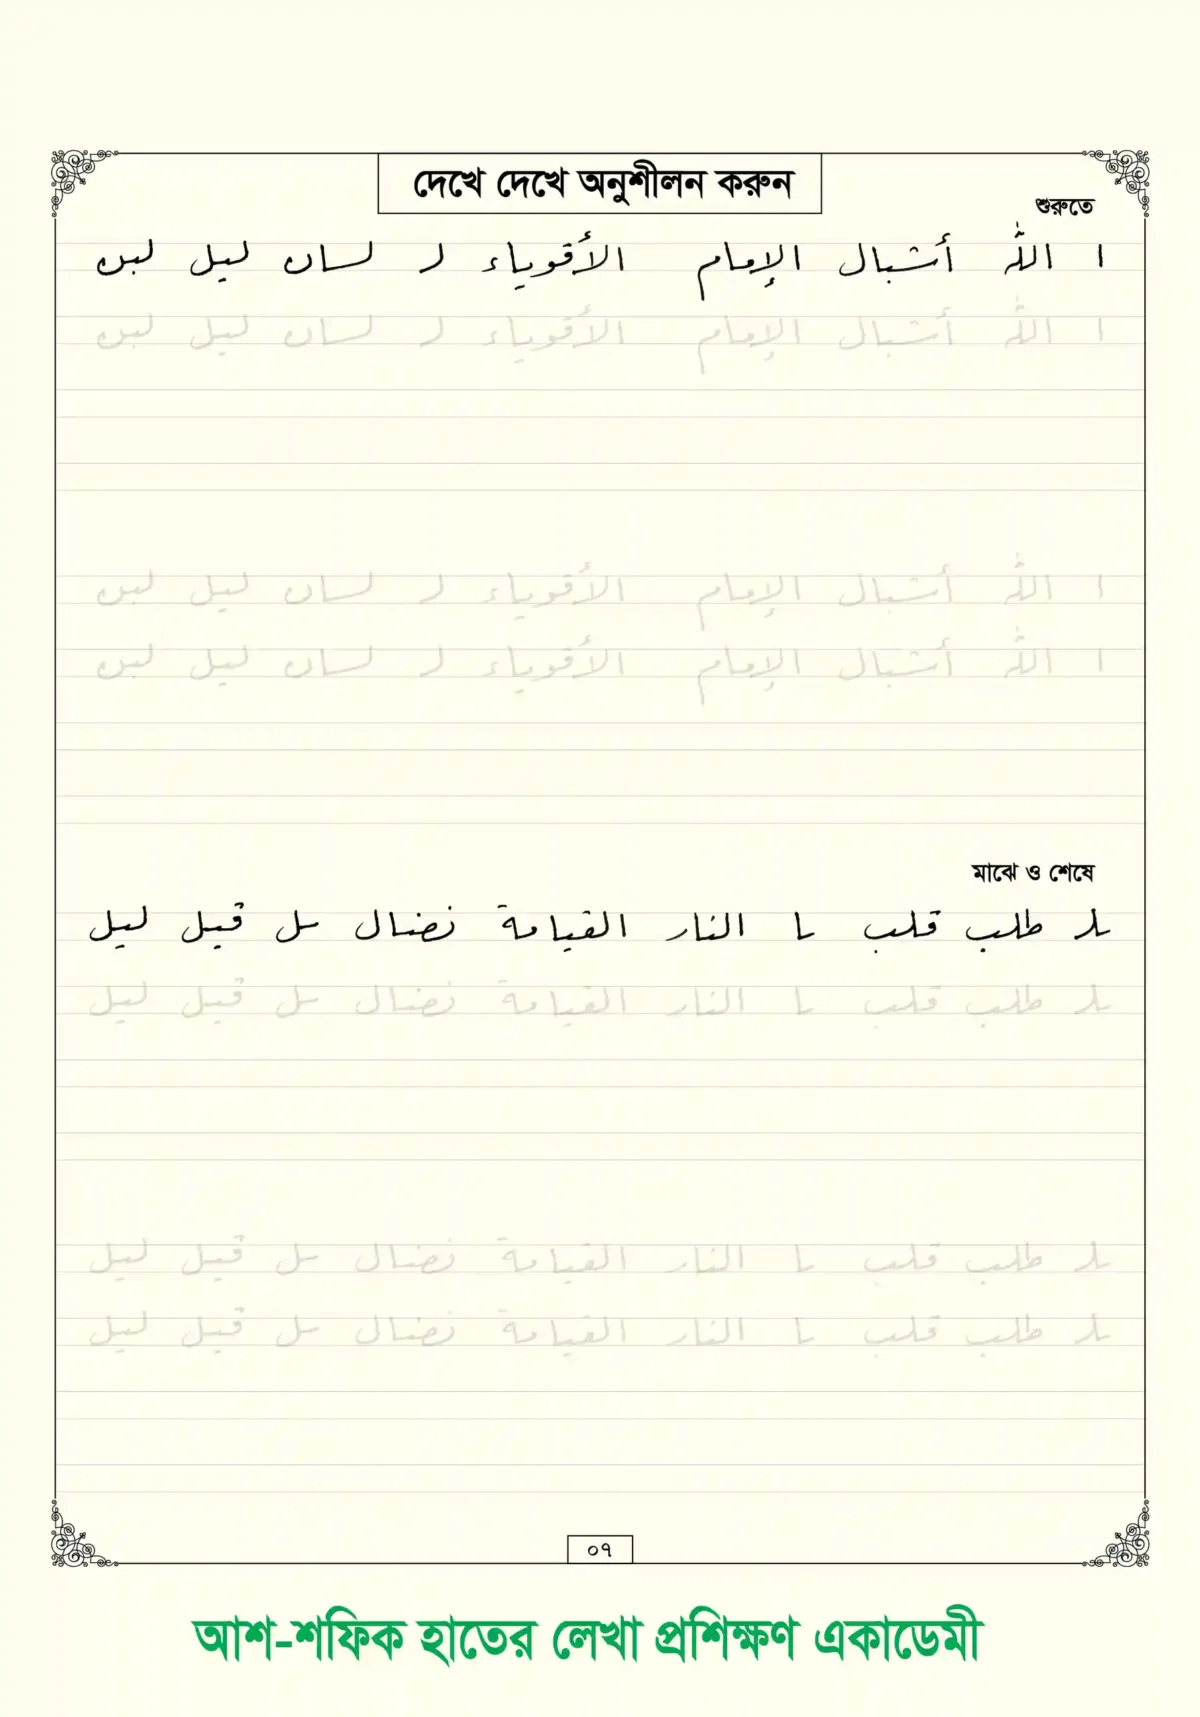 দেখে দেখে অনুশীলন করুন
শুরুতে
ا الله أشبال الإمام الأقوياء لـ لسان ليل لبن
ا الله أشبال الإمام الأقوياء لـ لسان ليل لبن
ا الله أشبال الإمام الأقوياء لـ لسان ليل لبن
ا الله أشبال الإمام الأقوياء لـ لسان ليل لبن
মাঝে ও শেষে
ـلـ طلب قلب ـا النار القيامة نضال ـل قيل ليل
ـلـ طلب قلب ـا النار القيامة نضال ـل قيل ليل
ـلـ طلب قلب ـا النار القيامة نضال ـل قيل ليل
ـلـ طلب قلب ـا النار القيامة نضال ـل قيل ليل
০৭
আশ-শফিক হাতের লেখা প্রশিক্ষণ একাডেমী